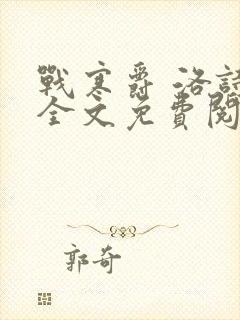 戰寒爵 洛詩
全文免費閱
郭奇